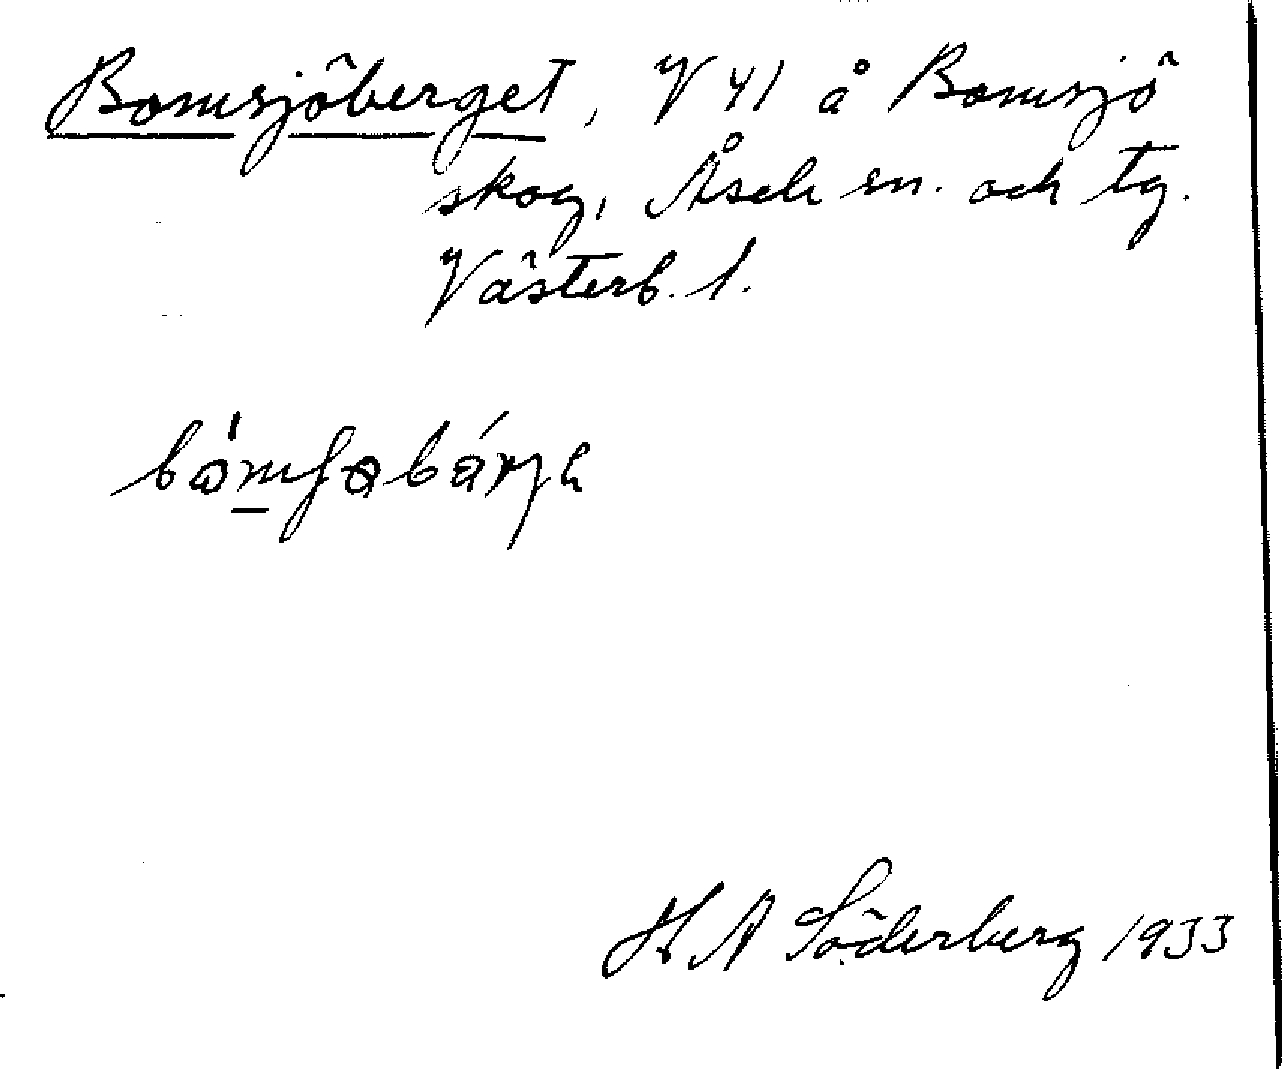 Bomsjöberget, V 41 å Bomsjö
skog, Åsele sn. och tg.
Västerb. l.
H A Söderberg 1933